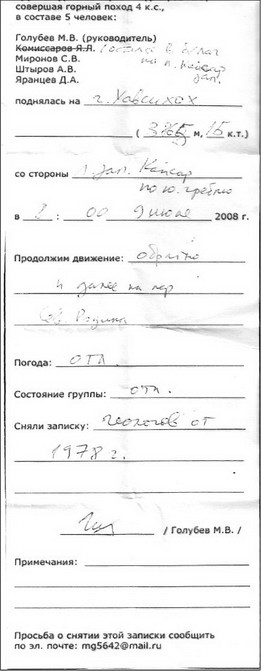 совершая горный поход 4 к.с.,
в составе 5 человек:
Голубев М.В. (руководитель)
Комиссаров Я.Л. остался в
Миронов С.В. на п. Кейсар
Штыров А.В. зап.
Яранцев Д.А.
поднялась на г. Хавсихох
( 3765 м, 1б к.т.)
со стороны п. зап. Кейсар
по ю. гребню
в : 00 9 июле 2008 г.
Продолжим движение: обратно
и далее на пер
Родина
Погода: отл
Состояние группы: отл.
Сняли записку: геологов от
1978 г.
/ Голубев М.В. /
Примечания:
Просьба о снятии этой записки сообщить
по эл. почте: mg5642@mail.ru